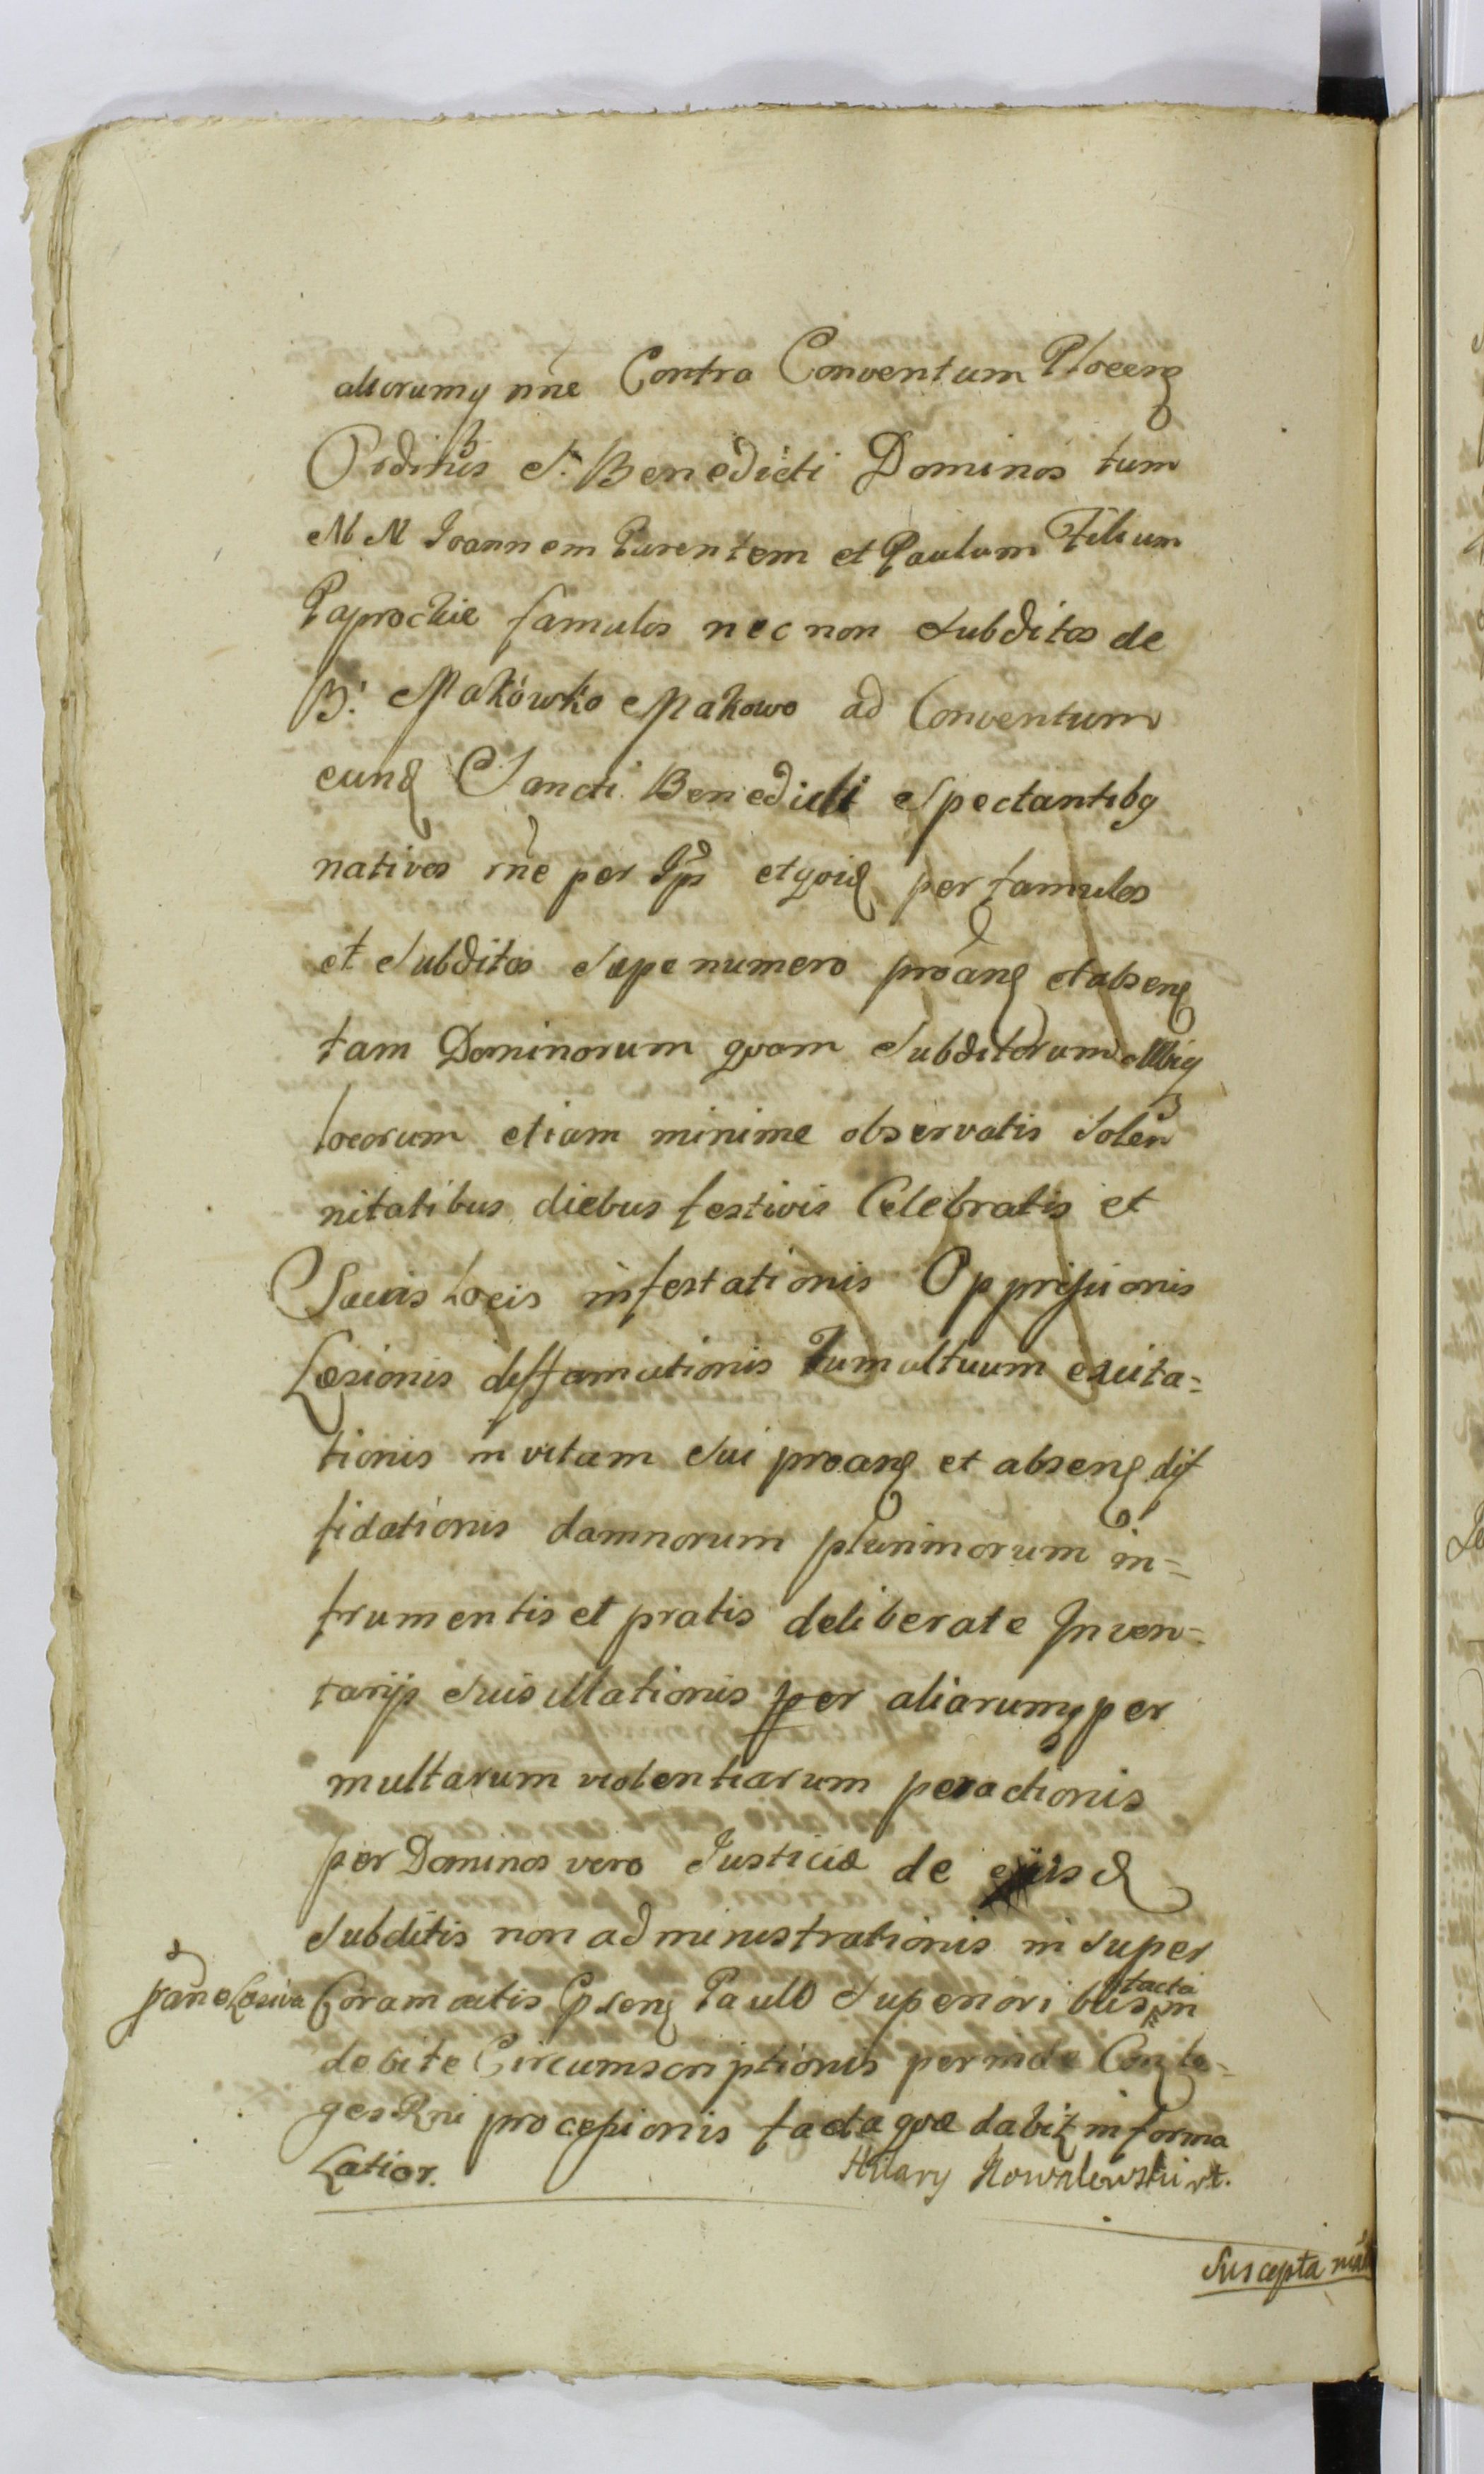 aliorumq nne Contra Conventum Plocens
Ordinis S. Benedicti Dominos tum
N N Joannem Parentem et Paulum Filium
Paprockie famulos nec non Subditos de
B: Makówko Makowo ad Conventum
eund Sancti Benedicti Spectantibq
nativos rne per Ips et qvid per famulos
et Subditos Sæpe numero proang et abseng
tam Dominorum qvam Subditorum
locorum etiam minime observatis Solen
nitatibus diebus festivis Celebratis et
Sacris Locis infestationis Oppressionis
Læsionis diffamationis Tumultuum excita=
tionis in vitam Sui proang et abseng dif
fidationis damnorum plurimorum in=
frumentis et pratis deliberate Inven=
tarijs Suis illationis per aliarumq per
multarum violentiarum peractionis
per Dominos vero Justiciæ de eijsd
Subditis non administrationis in Super
Coram actis Pseng Paulo Superioribus tacta in
debite Circumscriptionis perinde Con le=
ges Rni processionis facta qvæ dabit in forma
Latior.
Hilary Kowalewski vt.
Suscepta